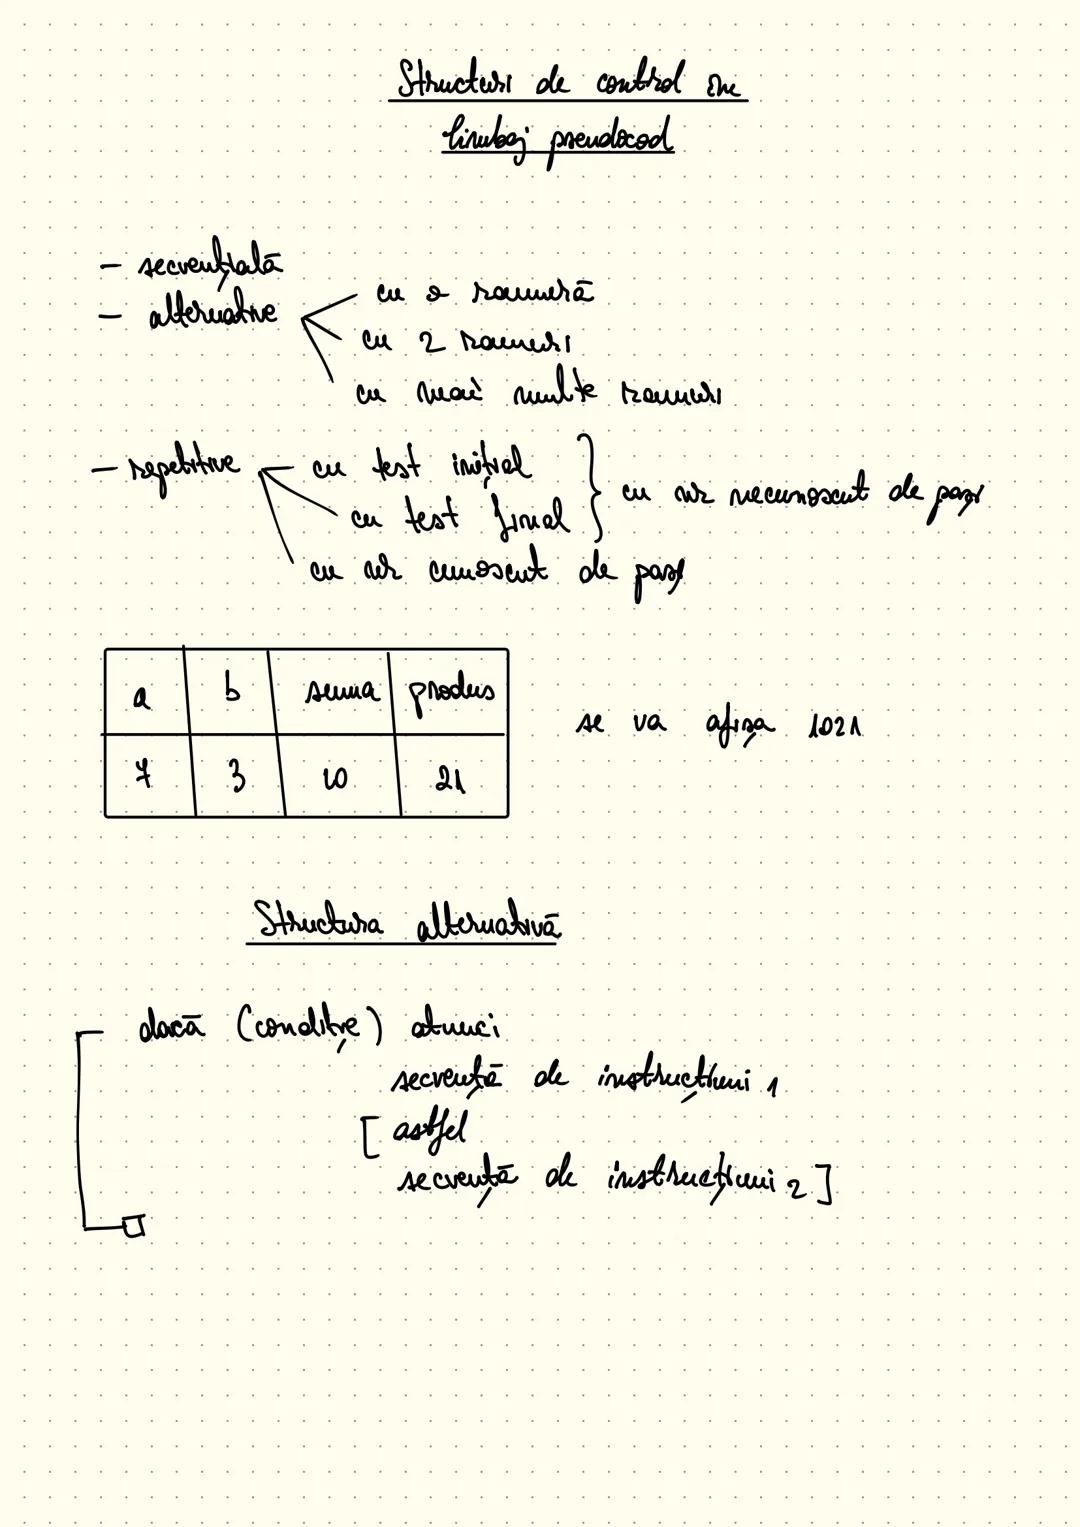 Structuri de control în
limbaj pseudocod
- secvențială
- alternative
cu o ramură
cu 2 ramuri
cu mai multe ramuri
- repetitive
cu test inițial
cu test final
cu nr necunoscut de pași
cu nr cunoscut de pași
a b suma produs
7 3 10 21
se va afișa 1021
Structura alternativă
dacă (condiție) atunci
secvență de instrucțiuni 1
[ astfel
secvență de instrucțiuni 2 ]